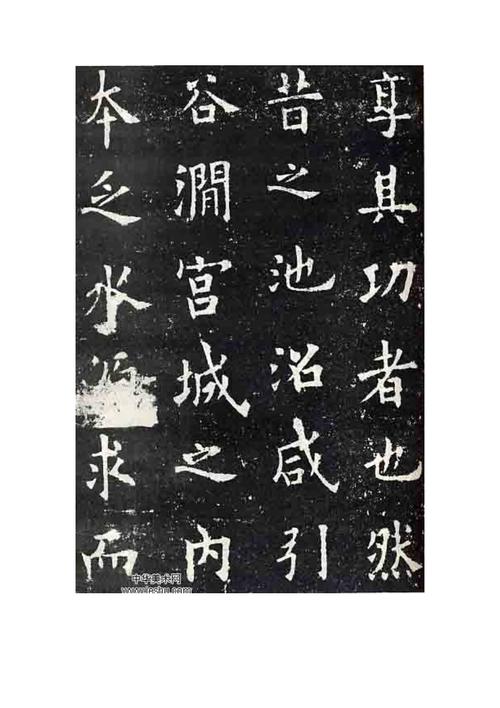 享其功者也然
昔之池沼咸引
谷澗宫城之内
本乏水求而
中华美术网